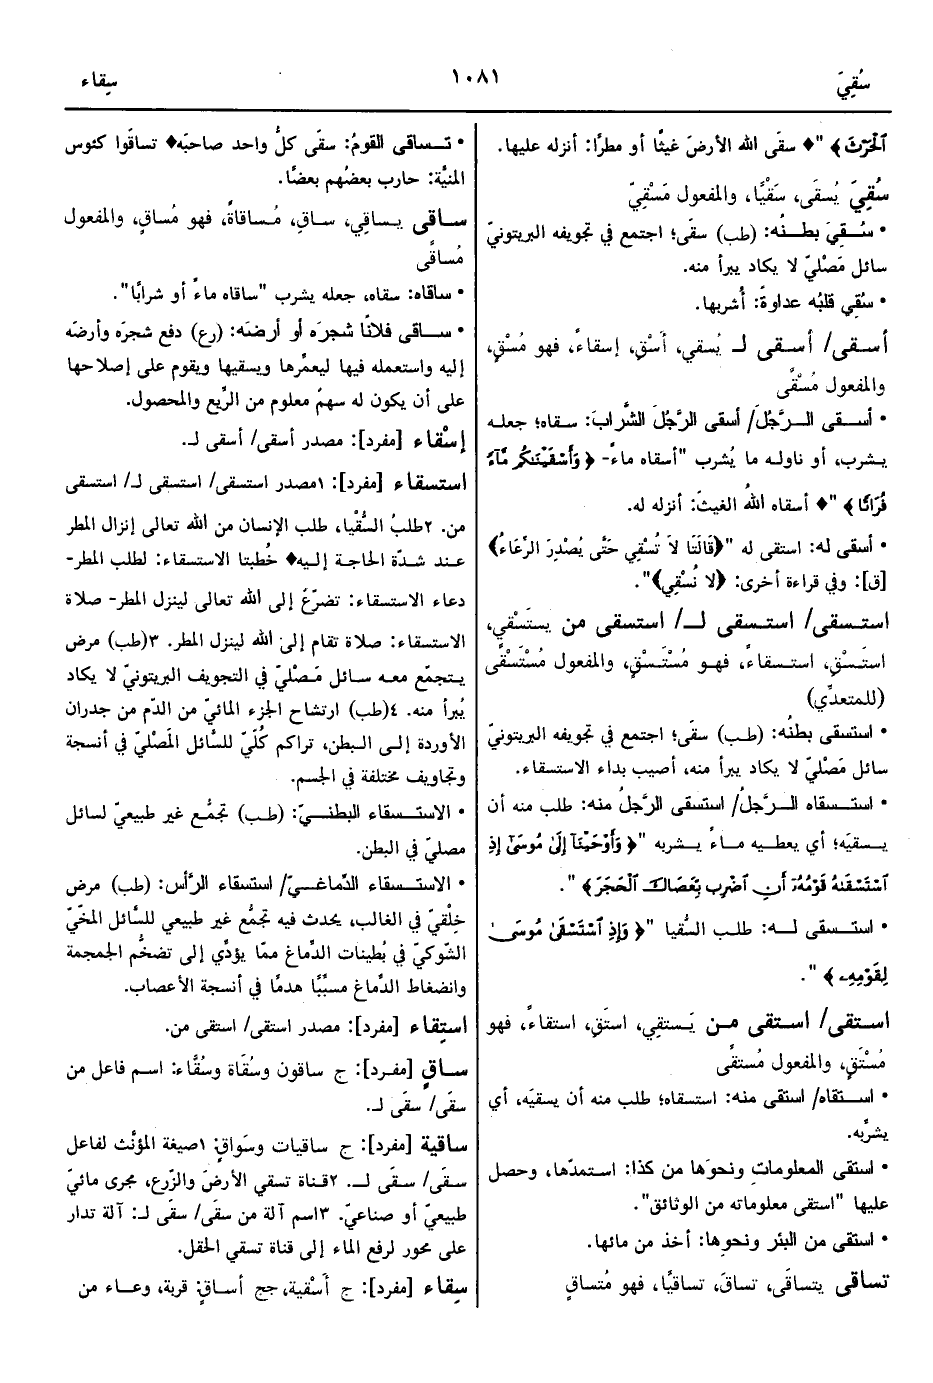 سُقِيَ
١٠٨١
سِقاء
ٱلْحَرْثَ﴾ "♦ سقَى الله الأرضَ غيثًا أو مطرًا: أنزله عليها.
سُقِيَ يُسقَى، سَقْيًا، والمفعول مَسْقِيّ
• سُـقـيَ بطـنُه: (طب) سقَى؛ اجتمع في تجويفه البريتونيّ
سائل مَصْليّ لا يكاد يبرأ منه.
• سُقي قلبُه عداوةً: أُشربها.
أسـقى/ أسـقى لـ يُسقي، أَسْقِ، إسقاءً، فهو مُسْقٍ،
والمفعول مُسْقًى
• أسـقى الـرَّجُلَ/ أسقى الرَّجُلَ الشَّرابَ: سقاه؛ جعله
يـشرب، أو ناولـه ما يُشرب "أسقاه ماءً- ﴿وَأَسْقَيْنَٰكُم مَّآءً
فُرَاتًا﴾ "♦ أسقاه اللهُ الغيثَ: أنزله له.
• أسقى له: استقى له "﴿قَالَتَا لاَ تُسْقِي حَتَّى يُصْدِرَ الرِّعَاءُ﴾
[ق]: وفي قراءة أخرى: ﴿لا نُسْقِي﴾".
استـسقى/ استـسقى لــ/ استسقى من يستَسْقِي،
استَسْقِ، استـسقاءً، فهـو مُسْتَسْقٍ، والمفعول مُسْتَسْقًى
(للمتعدِّي)
• استسقى بطنُه: (طـب) سقَى؛ اجتمع في تجويفه البريتونيّ
سائل مَصْليّ لا يكاد يبرأ منه، أصيب بداء الاستسقاء.
• استـسقاه الـرَّجلُ/ استسقى الرَّجلُ منه: طلب منه أن
يـسقيَه؛ أي يعطـيه مـاءً يـشربه "﴿وَأَوْحَيْنَآ إِلَىٰ مُوسَىٰٓ إِذِ
ٱسْتَسْقَىٰهُ قَوْمُهُۥٓ أَنِ ٱضْرِب بِّعَصَاكَ ٱلْحَجَرَ﴾ ".
• استـسقى لــه: طلـب السُّقيا "﴿وَإِذِ ٱسْتَسْقَىٰ مُوسَىٰ
لِقَوْمِهِۦ﴾ ".
استقى/ استقى مـن يَـستقِي، استَقِ، استقاءً، فهو
مُسْتَقٍ، والمفعول مُستقًى
• استقاه/ استقى منه: استسقاه؛ طلب منه أن يسقيَه، أي
يشربَه.
• استقى المعلوماتِ ونحوَها من كذا: استمدّها، وحصل
عليها "استقى معلوماته من الوثائق".
• استقى من البئر ونحوِها: أخذ من مائها.
تساقى يتساقَى، تساقَ، تساقيًا، فهو مُتساقٍ
• تـساقى القومُ: سقَى كلُّ واحد صاحبَه♦ تساقَوا كئوس
المنيَّة: حارب بعضُهم بعضًا.
ساقى يـساقِي، ساقِ، مُـساقاةً، فهو مُساقٍ، والمفعول
مُساقًى
• ساقاه: سقاه، جعله يشرب "ساقاه ماءً أو شرابًا".
• سـاقى فلانًا شجرَه أو أرضَه: (رع) دفع شجرَه وأرضَه
إليه واستعمله فيها ليعمِّرها ويسقيها ويقوم على إصلاحها
على أن يكون له سهمٌ معلوم من الرِّيع والمحصول.
إسْقاء [مفرد]: مصدر أسقى/ أسقى لـ.
استسقاء [مفرد]: ١مصدر استسقى/ استسقى لـ/ استسقى
من. ٢طلبُ السُّقْيا، طلب الإنسان من الله تعالى إنزال المطر
عـند شدّة الحاجـة إليـه♦ خُطبتا الاستسقاء: لطلب المطر-
دعاء الاستسقاء: تضرّعٌ إلى الله تعالى لينزل المطر- صلاة
الاستسقاء: صلاة تقام إلى الله لينزل المطر. ٣(طب) مرض
يـتجمّع معـه سـائل مَـصْليّ في التجويف البريتونيّ لا يكاد
يُبرأ منه. ٤(طب) ارتشاح الجزء المائيّ من الدّم من جدران
الأوردة إلـى الـبطن، تراكم كُلّيّ للسَّائل المَصْليّ في أنسجة
وتجاويف مختلفة في الجسم.
• الاستـسقاء البطنـيّ: (طـب) تجمُّع غير طبيعيّ لسائل
مصليّ في البطن.
• الاستـسقاء الدِّماغـيّ/ استسقاء الرَّأس: (طب) مرض
خِلْقيّ في الغالب، يحدث فيه تجمُّع غير طبيعي للسَّائل المخّيّ
الشَّوكيّ في بُطينات الدِّماغ ممّا يؤدِّي إلى تضخُّم الجمجمة
وانضغاط الدِّماغ مسبِّبًا هدمًا في أنسجة الأعصاب.
استِقاء [مفرد]: مصدر استقى/ استقى من.
سـاقٍ [مفـرد]: ج ساقون وسُقَاة وسُقَّاء: اسـم فاعل من
سقَى/ سقَى لـ.
ساقية [مفرد]: ج ساقيات وسَواقٍ: ١صيغة المؤنَّث لفاعل
سـقَى/ سـقَى لــ. ٢قـناة تسقي الأرضَ والزّرع، مجرى مائيّ
طبيعيّ أو صناعيّ. ٣اسم آلة من سقَى/ سقَى لـ: آلة تدار
على محور لرفع الماء إلى قناة تسقي الحقل.
سِقاء [مفرد]: ج أَسْقية، جج أساقٍ: قربة، وعـاء من